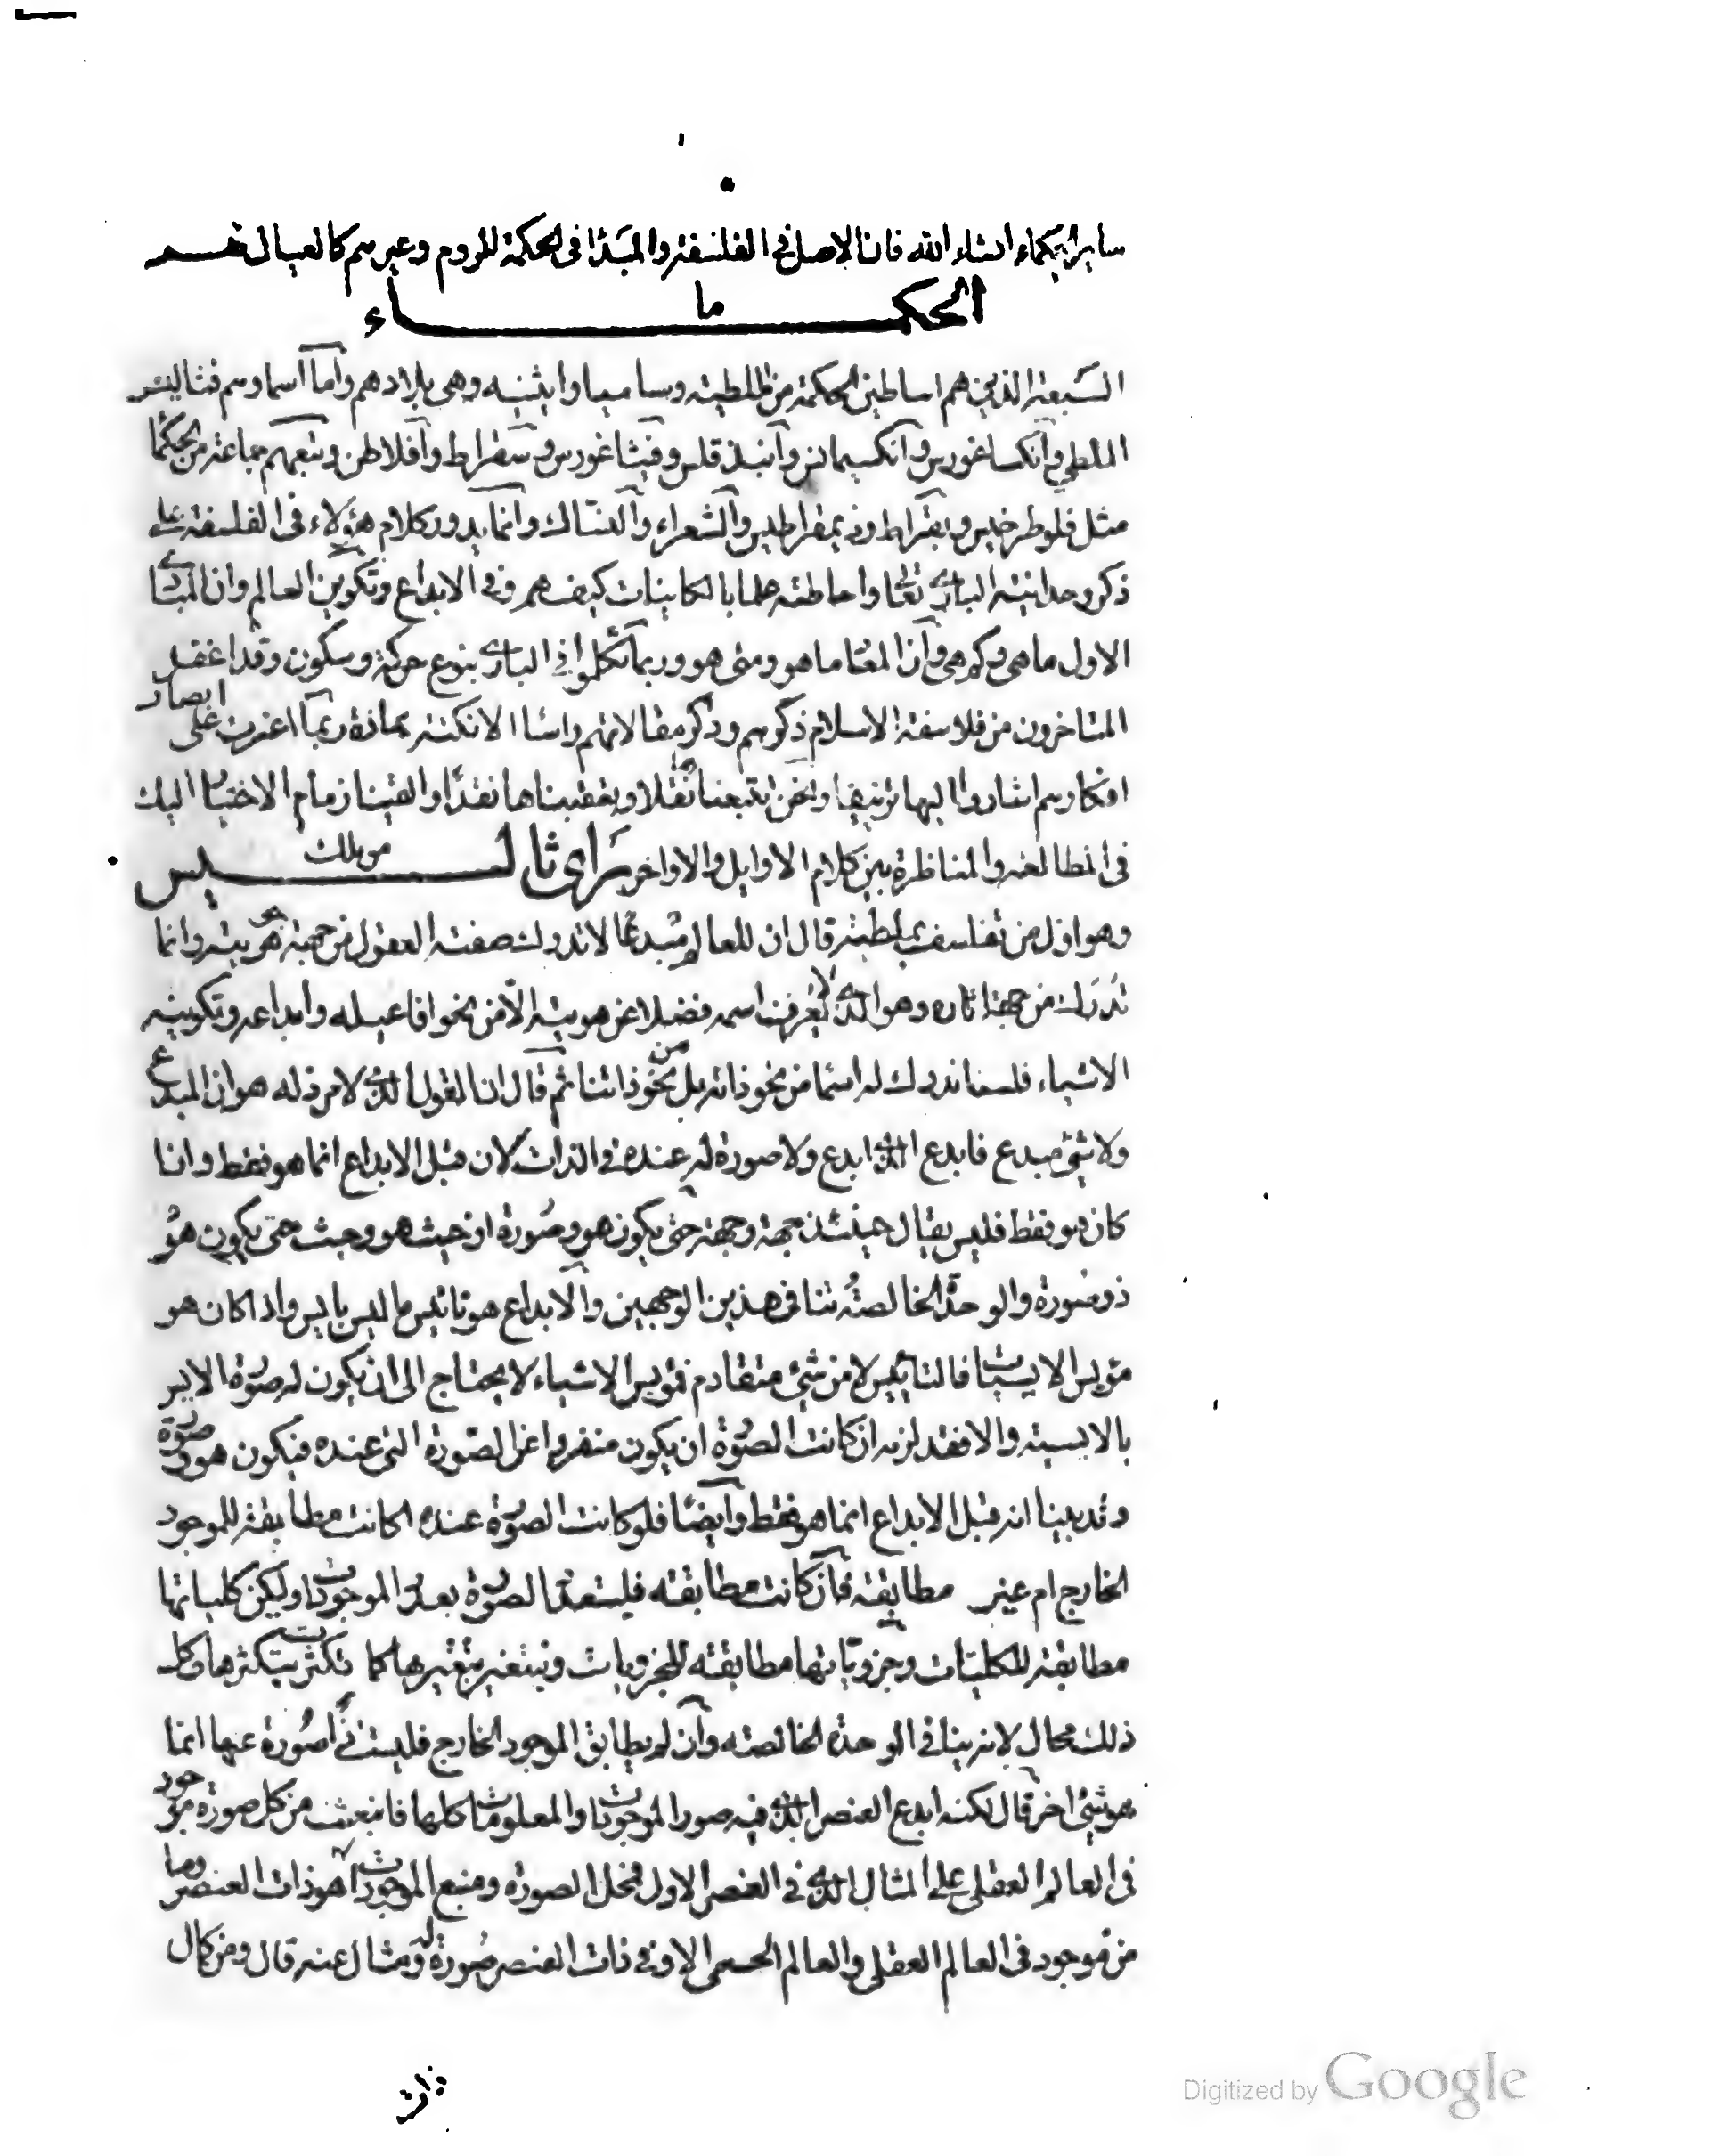 ساير الحكماء انشاء الله فان الاصل في الفلسفة والمبدا في الحكمة للروم وغيرهم كالعيال لهم
الحكماء
السبعة الذين هم اساطين الحكمة من ملطية وساميا واثينيه وهي بلادهم واما اسماوهم فثاليس
الملطي وانكساغورس وانكسيمانس وانبذقلس وفيثاغورس وسقراط وافلاطن وتبعهم جماعة من الحكما
مثل فلوطرخيس وبقراط وذيمقراطيس والشعراء والنساك وانما يدور كلام هؤلاء في الفلسفة على
ذكر وحدانية الباري تعالى واحاطته علما بالكاينات كيف هم وفي الابداع وتكوين العالم وان المبادي
الاول ما هي وكم هي وان المعاد ما هو ومتى هو وربما تكلموا في الباري بنوع حركة وسكون وقد اغفل
المتاخرون من فلاسفة الاسلام ذكرهم وذكر مقالاتهم راسا الا نكتة شاذة ربما اعترت على ابصار
افكارهم اشاروا اليها تزييفا ونحن تتبعناها نقلا وتعقبناها نقدا والقينا زمام الاختيار اليك
في المطالعة والمناظرة بين كلام الاوايل والاواخر راي ثاليس
وهو اول من تفلسف بملطية قال ان للعالم مبدعا لا تدرك صفته العقول من جهة هويته وانما
تدرك من جهة اثاره وهو الذي لا يعرف اسمه فضلا عن هويته الا من نحو افاعيله وابداعه وتكوينه
الاشياء فلسنا ندرك له اسما من نحو ذاته بل من نحو ذاتنا ثم قال ان القول الذي لا مرد له هو ان المبدع
ولا شئ مبدع فابدع الذي ابدع ولا صورة له عنده في الذات لان قبل الابداع انما هو فقط واذا
كان هو فقط فليس يقال حينئذ جهة وجهة حتى يكون هو وصورة او حيث هو وحيث حتى يكون هو
ذو صورة والوحدة الخالصة تنافي هذين الوجهين والابداع هو تاييس ما ليس بايس واذا كان هو
مؤيس الايسيات فالتاييس لا من شئ متقادم فمؤيس الاشياء لا يحتاج الى ان يكون له صورة الايس
بالايسية والا فقد لزمه ان كانت الصورة ان يكون منفردا عن الصورة التي عنده فيكون هو وصورة
وقد بينا انه قبل الابداع انما هو فقط وايضا فلو كانت الصورة عنده اكانت مطابقة للموجود
الخارج ام غير مطابقة فان كانت مطابقة فليتعدد الصورة بعدد الموجودات وليكن كلياتها
مطابقة للكليات وجزوياتها مطابقة للجزويات ويتغير بتغيرها كما تكثر بتكثرها وكل
ذلك محال لانه ينافي الوحدة الخالصة وان لم يطابق الموجود الخارج فليست اذا صورة عنها انما
هو شئ اخر قال لكنه ابدع العنصر الذي فيه صور الموجودات والمعلومات كلها فانبعث من كل صورة موجود
في العالم العقلي على المثال الذي في العنصر الاول فمحل الصورة ومنبع الموجودات هو ذات العنصر وما
من موجود في العالم العقلي والعالم الحسي الا وفي ذات العنصر صورة له ومثال عنه قال ومن كمال
ذات
Digitized by Google